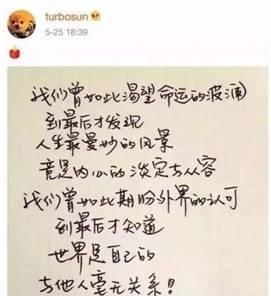 turbosun
5-25 18:39
我们曾如此渴望命运的波澜
到最后才发现
人生最曼妙的风景
竟是内心的淡定与从容
我们曾如此期盼外界的认可
到最后才知道
世界是自己的
与他人毫无关系!